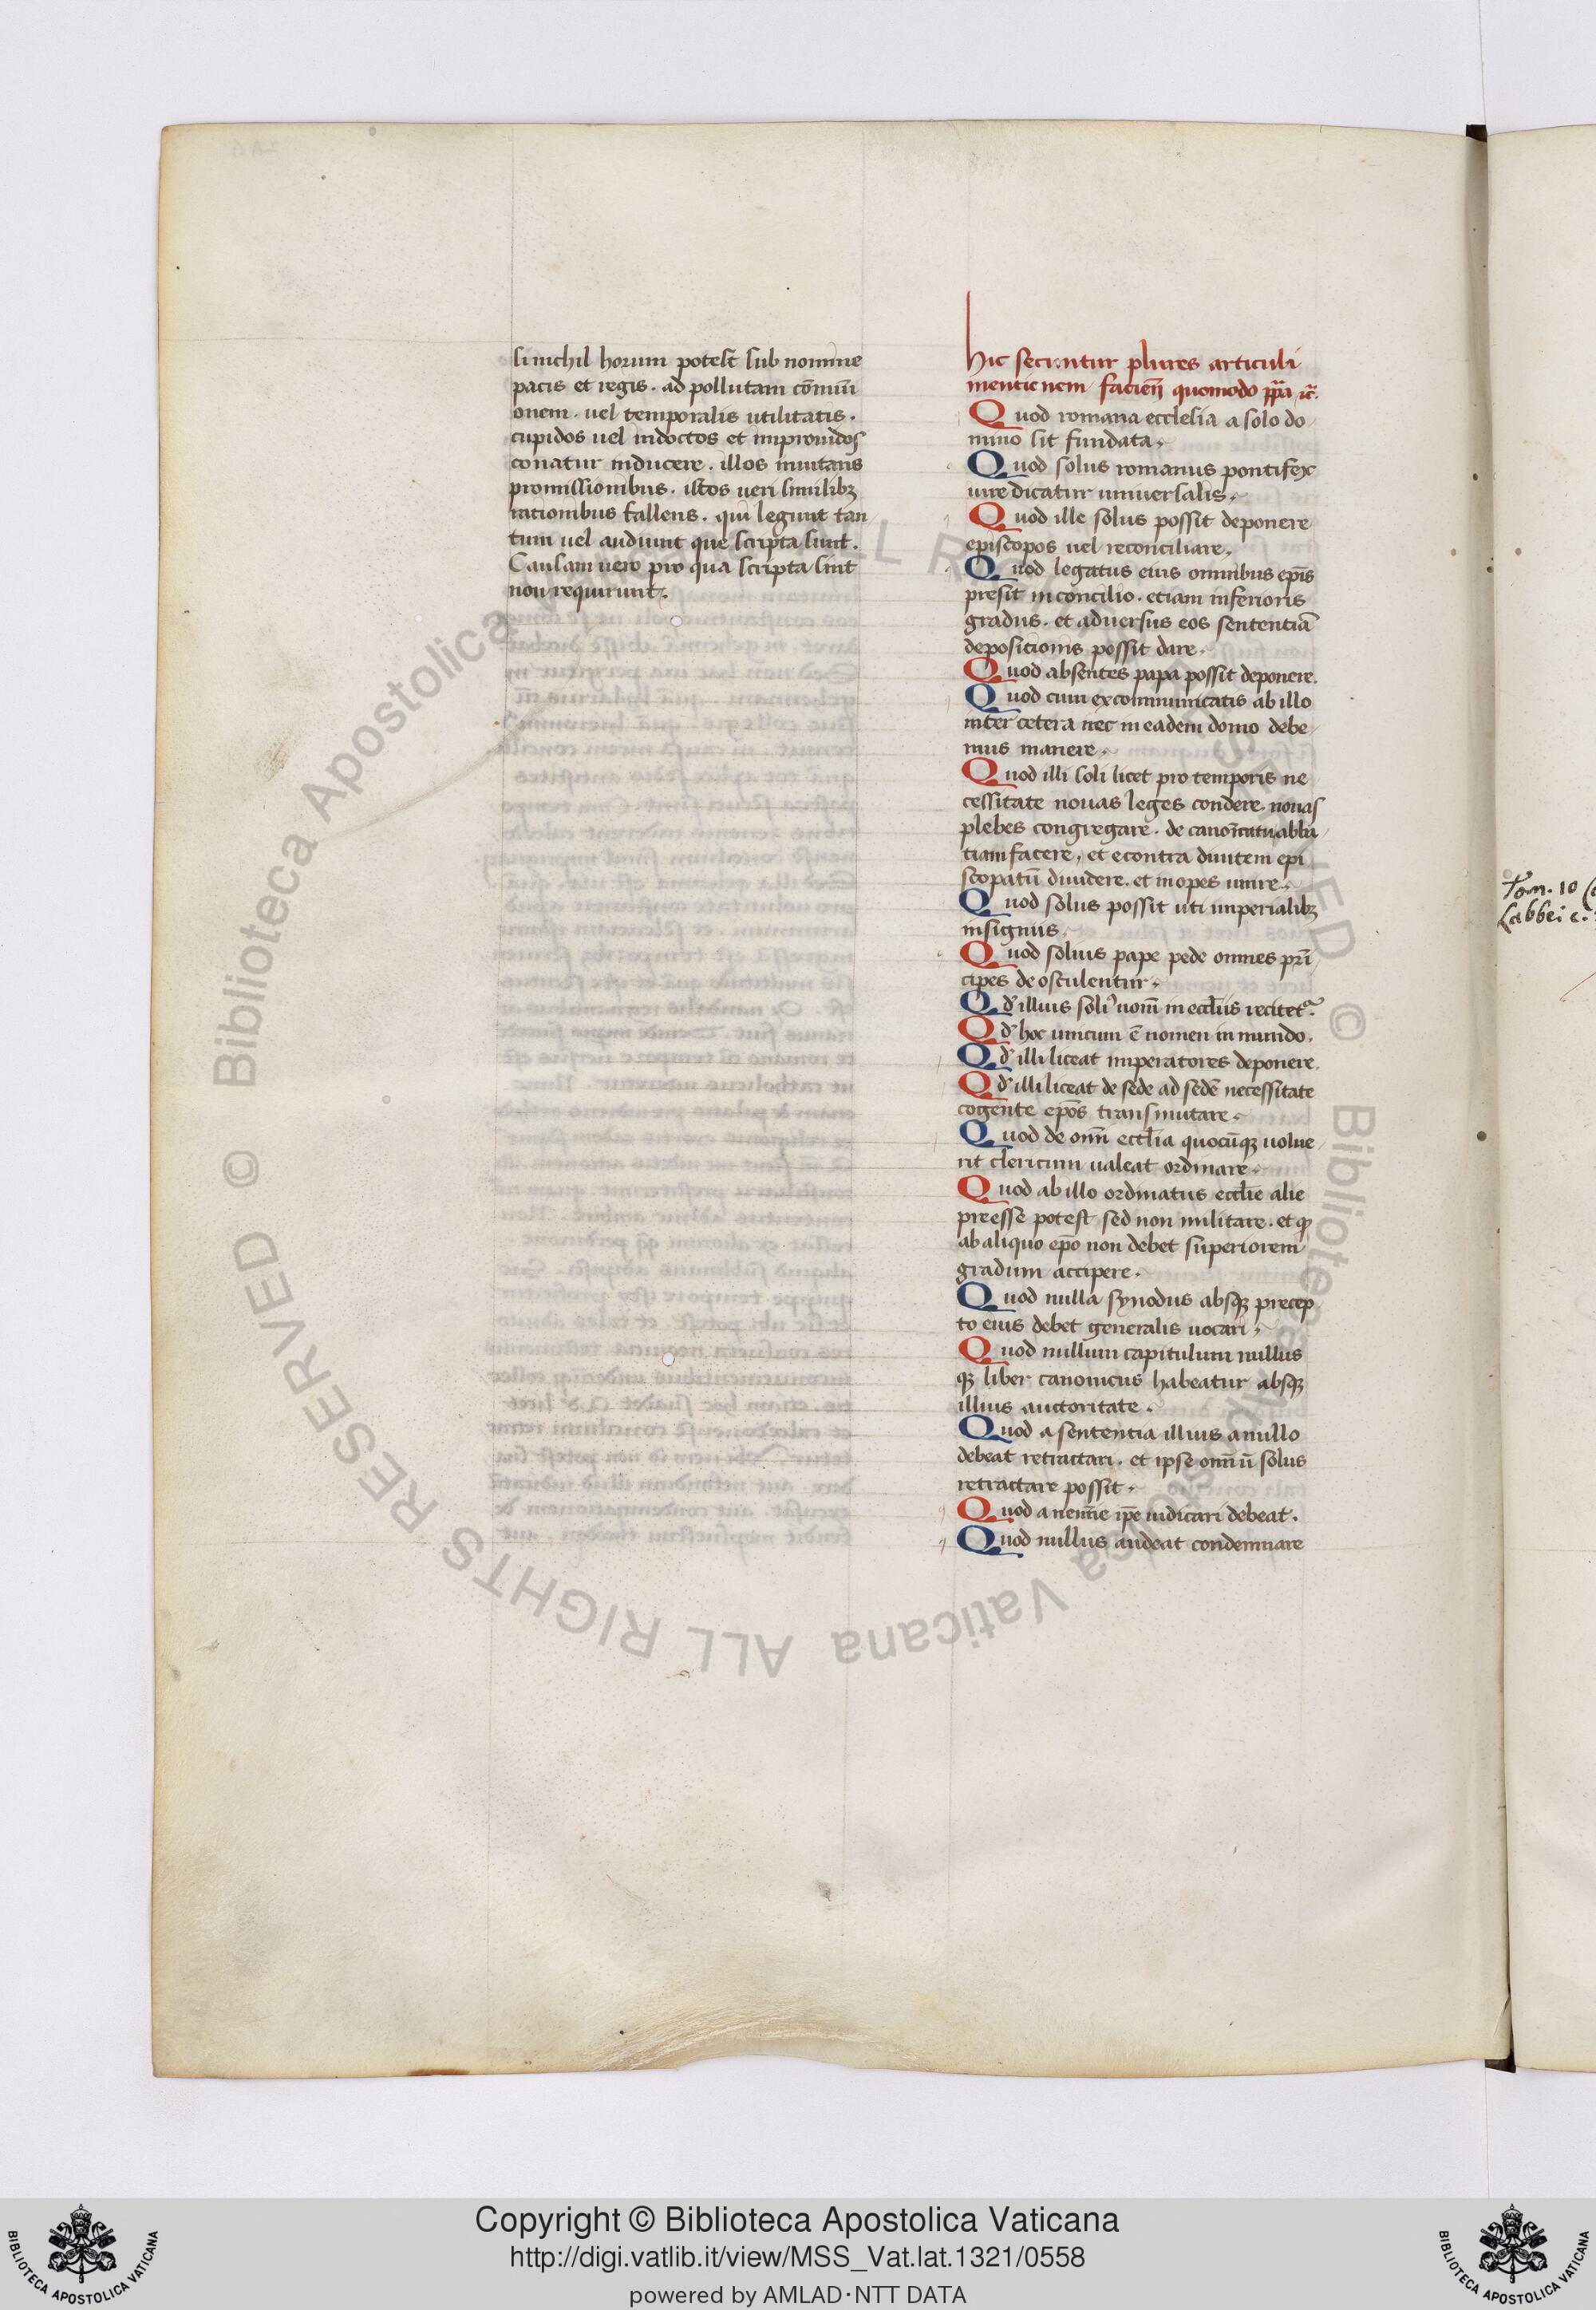 si nichil horum potest sub nomine
pacis et regis. ad pollutam cōmuni
onem. uel temporalis utilitatis.
cupidos uel indoctos et improuidos
conatur inducere. illos inuitans
promissionibus. istos ueri similibꝫ
racionibus fallens. qui legunt tan
tum uel audiunt que scripta sunt.
Causam uero pro qua scripta sint
non requirunt.
Hic secuntur plures articuli
mentionem facien̄ quomodo pp̄a ⁊c̄.
Quod romana ecclesia a solo do
mino sit fundata.
Quod solus romanus pontifex
iure dicatur uniuersalis.
Quod ille solus possit deponere
episcopos uel reconciliare.
Quod legatus eius omnibus ep̄is
presit in concilio. etiam inferioris
gradus. et aduersus eos sententiā
depositionis possit dare.
Quod absentes papa possit deponere.
Quod cum excommunicatis ab illo
inter cetera nec in eadem domo debe
mus manere.
Quod illi soli licet pro temporis ne
cessitate nouas leges condere. nouas
plebes congregare. de canoīcatu abba
tiam facere, et econtra diuitem epi
scopatū diuidere. et inopes unire.
Quod solus possit uti imperialibꝫ
insigniis.
Quod solius pape pede omnes prī
cipes deosculentur.
Qd' illius soli' nom̄ in eccl̄iis recitetᷣ.
Qd' hoc unicum ē nomen in mundo.
Qd' illi liceat imperatores deponere.
Qd' illi liceat de sede ad sedē necessitate
cogente ep̄os transmutare.
Quod de om̄i eccl̄ia quocūqꝫ uolue
rit clericum ualeat ordinare.
Quod ab illo ordinatus eccl̄ie alie
preesse potest sed non militare. et ꝙ
ab aliquo ep̄o non debet superiorem
gradum accipere.
Quod nulla synodus absqꝫ precep
to eius debet generalis uocari.
Quod nullum capitulum nullus
qꝫ liber canonicus habeatur absqꝫ
illius auctoritate.
Quod a sententia illius a nullo
debeat retractari. et ipse om̄iū solus
retractare possit.
Quod a nemīe ip̄e iudicari debeat.
Quod nullus audeat condemnare
Tom. 10
Labbei c.
© Biblioteca Apostolica Vaticana ALL RIGHTS RESERVED © Biblioteca Apostolica Vaticana ALL RIGHTS RESERVED
Copyright © Biblioteca Apostolica Vaticana
http://digi.vatlib.it/view/MSS_Vat.lat.1321/0558
powered by AMLAD·NTT DATA
BIBLIOTECA APOSTOLICA VATICANA
BIBLIOTECA APOSTOLICA VATICANA